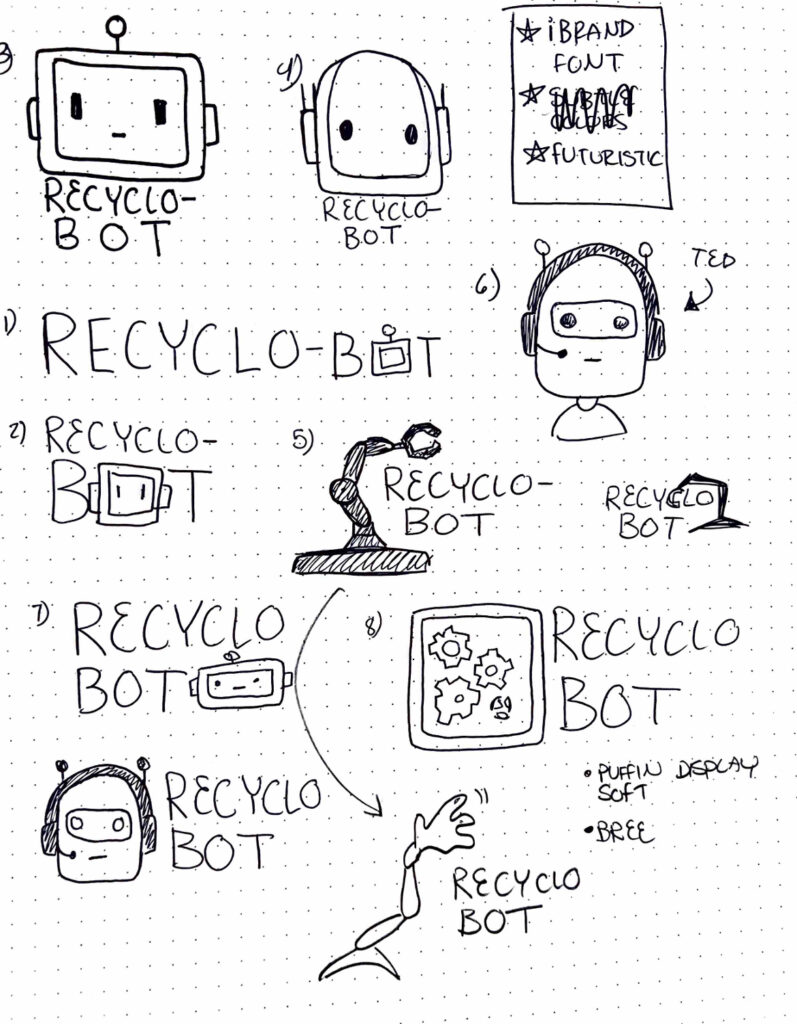 3)
RECYCLO-
BOT
4)
RECYCLO-
BOT
☆ iBRAND
FONT
☆
COLORS
☆ FUTURISTIC
1) RECYCLO-BOT
2) RECYCLO-
BOT
5)
RECYCLO-
BOT
6)
TED
RECYCLO
BOT
7) RECYCLO
BOT
8) RECYCLO
BOT
RECYCLO
BOT
• PUFFIN DISPLAY
SOFT
• BREE
RECYCLO
BOT